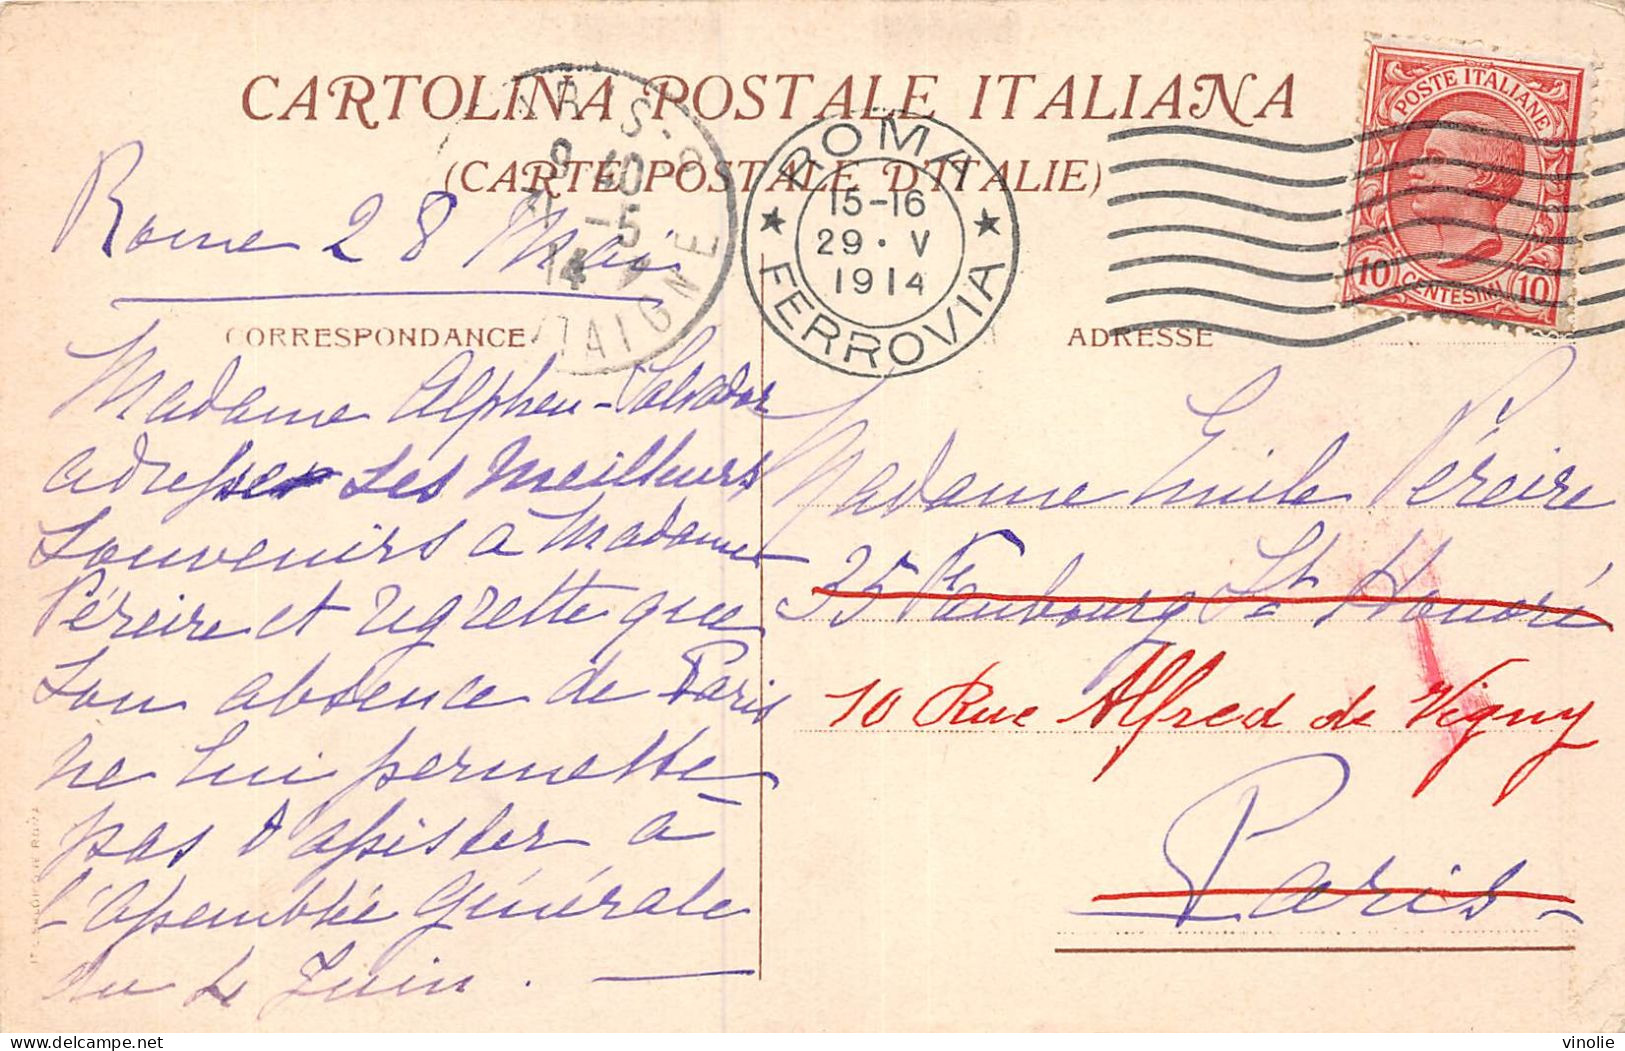 CARTOLINA POSTALE ITALIANA
(CARTE POSTALE D'ITALIE)
POSTE ITALIANE
10 CENTESIMI 10
ROMA
15-16
29 · V
1914
FERROVIA
PARIS-8
10
-5
14
Rome 28 Mai
CORRESPONDANCE
ADRESSE
Madame Alphen-Salvador
adresse les meilleurs
souvenirs à Madame
Péreire et regrette que
son absence de Paris
ne lui permette
pas d'assister à
l'assemblée générale
du 4 Juin.
Madame Emile Péreire
35 Faubourg St Honoré
10 Rue Alfred de Vigny
Paris
vinolie
delcampe.net